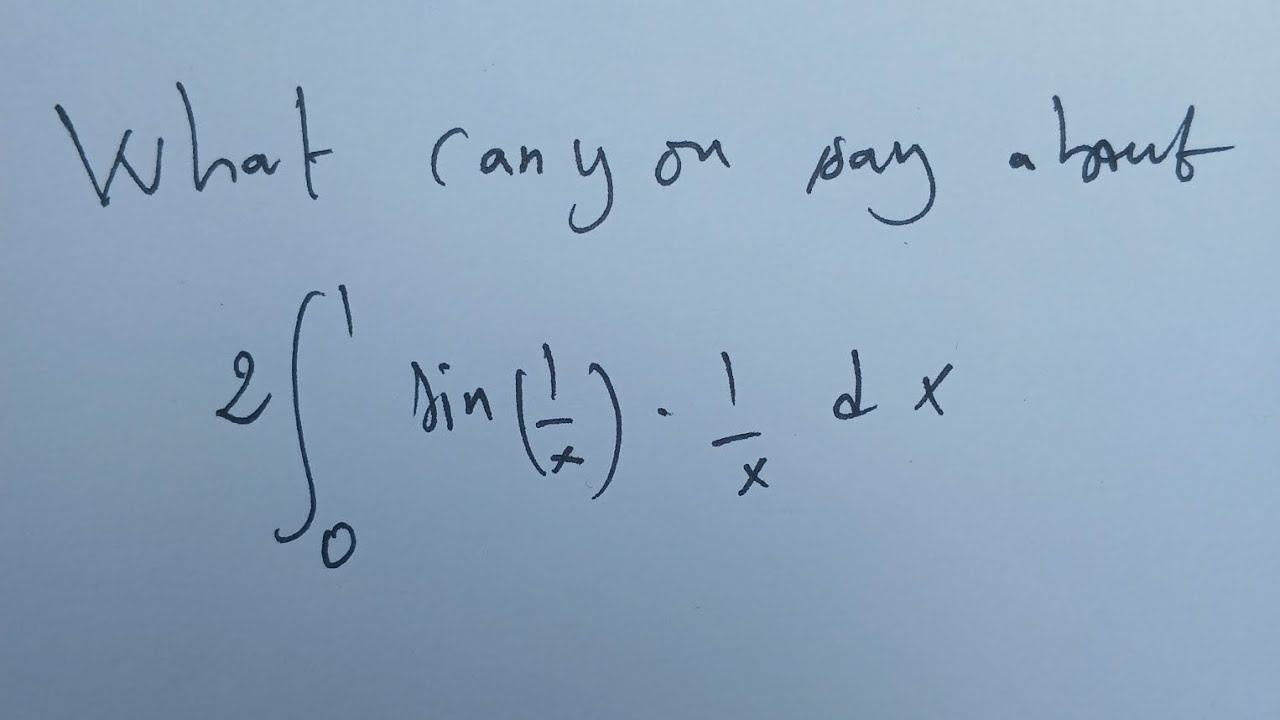 What can you say about
2 ∫₀¹ sin(1/x) · 1/x dx